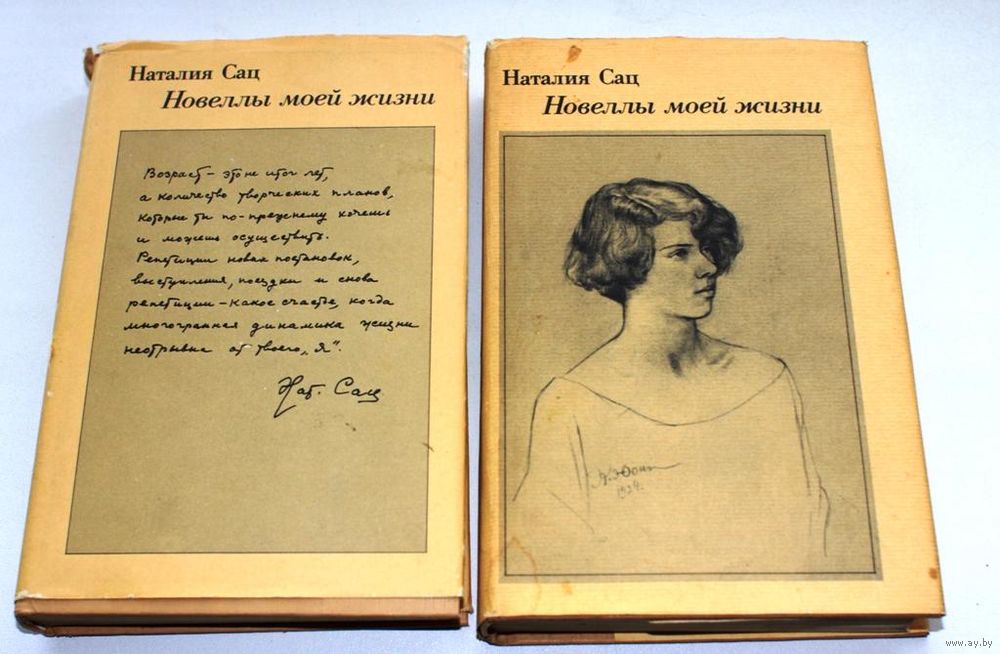 Наталия Сац
Новеллы моей жизни
Возраст – это не итог лет,
а количество творческих планов,
которые ты по-прежнему хочешь
и можешь осуществить.
Репетиции новых постановок,
выступления, поездки и снова
репетиции – какое счастье, когда
многогранная динамика жизни
неотрывна от твоего „Я".
Нат. Сац
Наталия Сац
Новеллы моей жизни
1924.
www.ay.by